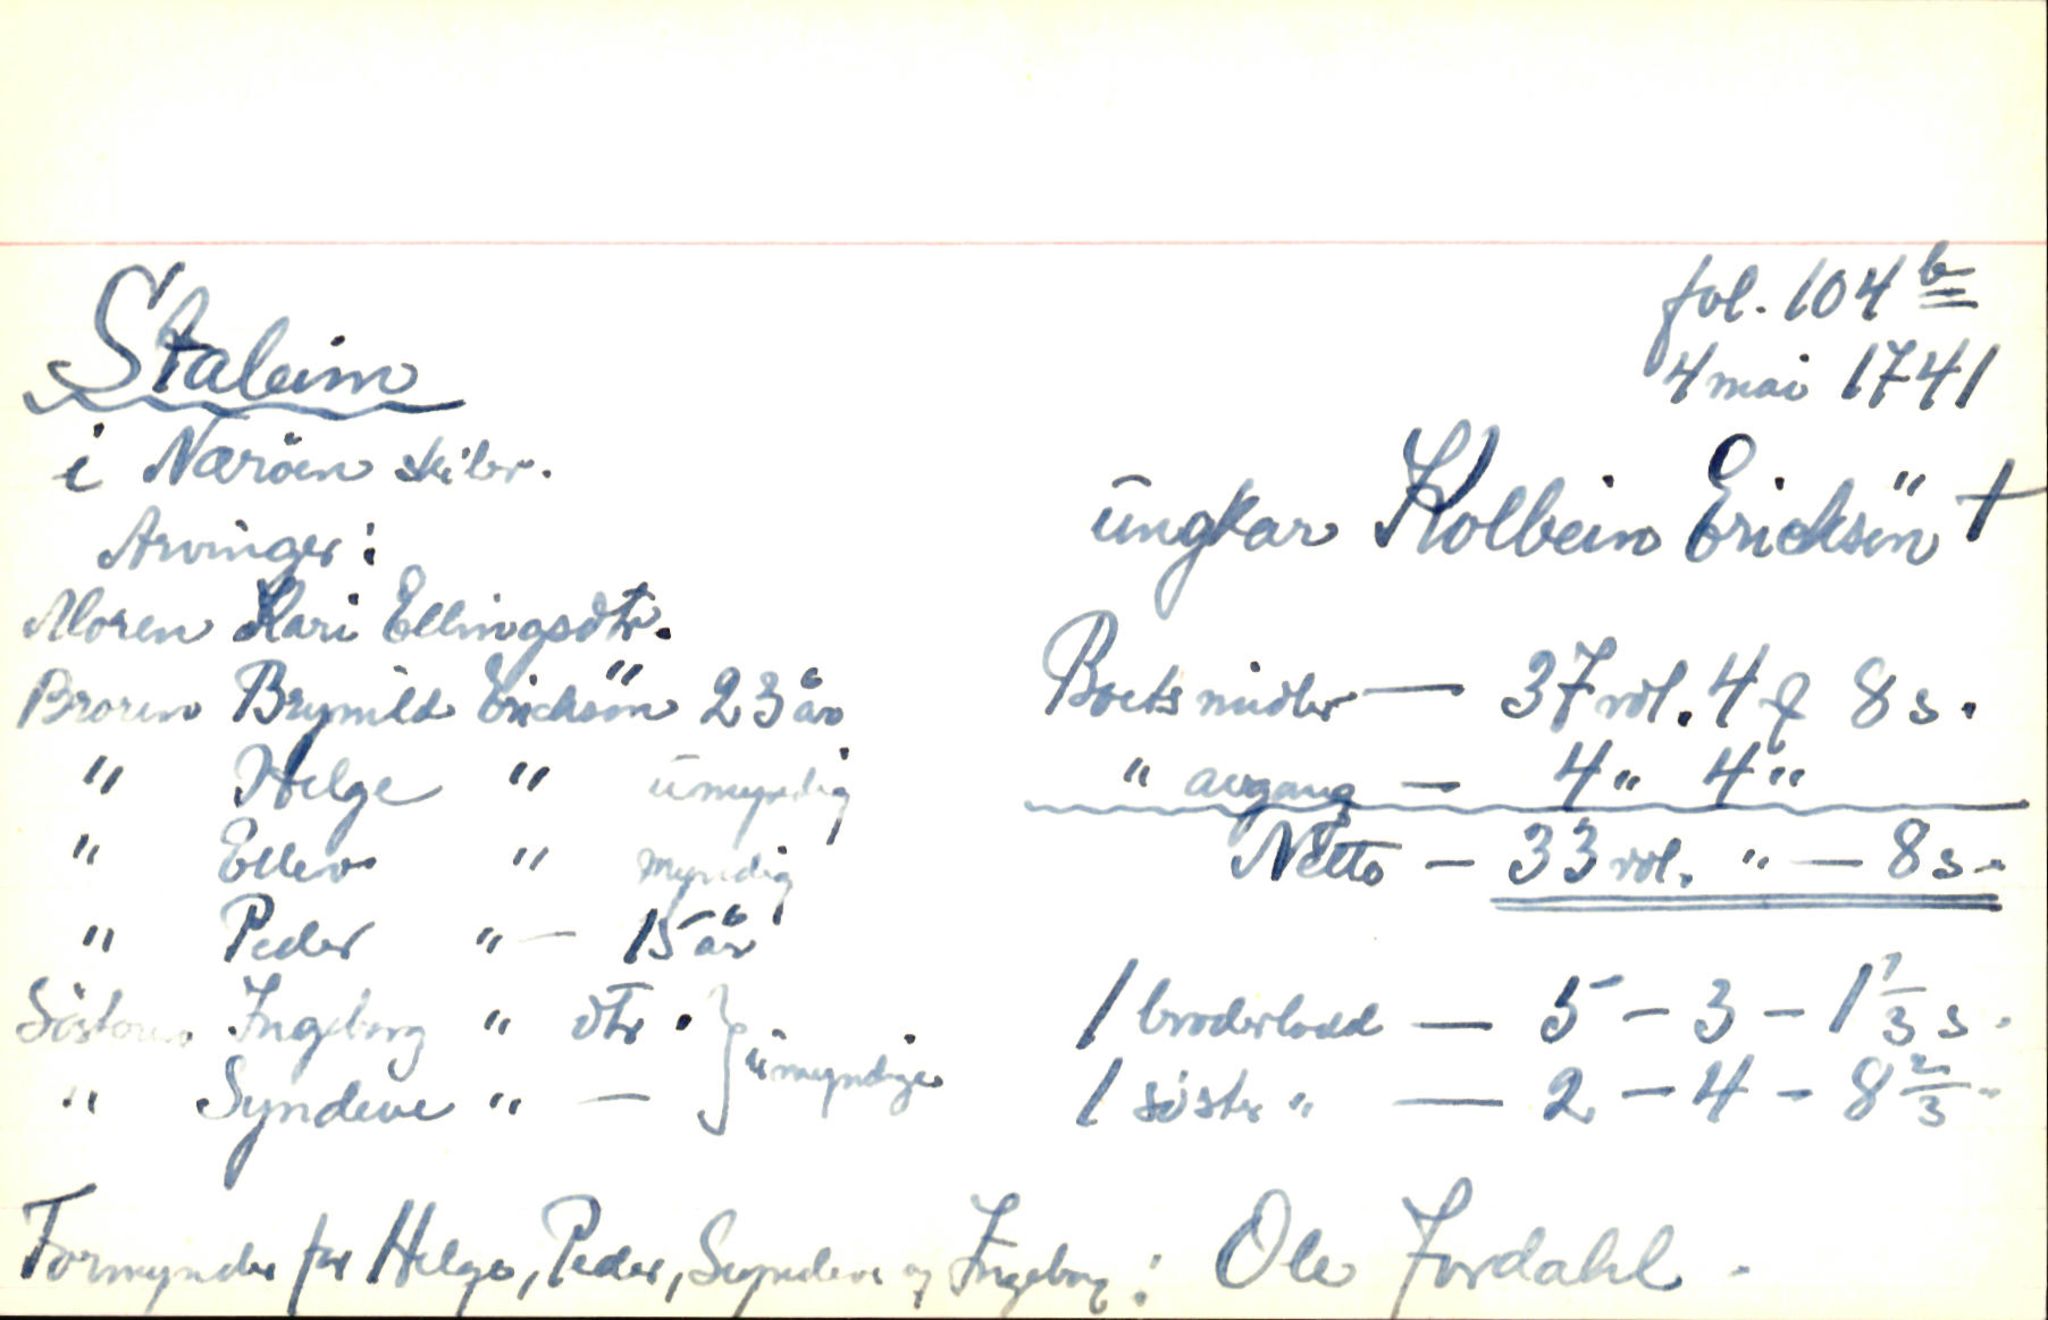 fol. 104 b
4 mai 1741
Staleim
i Næröen skibr.
ungkar Kolbein Ericksön †
Arvinger:
Moren Kari Ellingsdtr.
Broren Brynild Ericksön 23 år
" Helge " umyndig
" Ellev " myndig
" Peder " — 15 år
Söstrene Ingeborg " dtr. } umyndige
" Syndeve " —
Boets midler — 37 rdl. 4 ƒ 8 s.
" avgang — 4 " 4 "
Netto — 33 rdl. " — 8 s.
1 broderlodd — 5 - 3 - 1 1/3 s.
1 söster " — 2 - 4 - 8 2/3 "
Formynder for Helge, Peder, Syndeve og Ingeborg: Ole Jordahl.